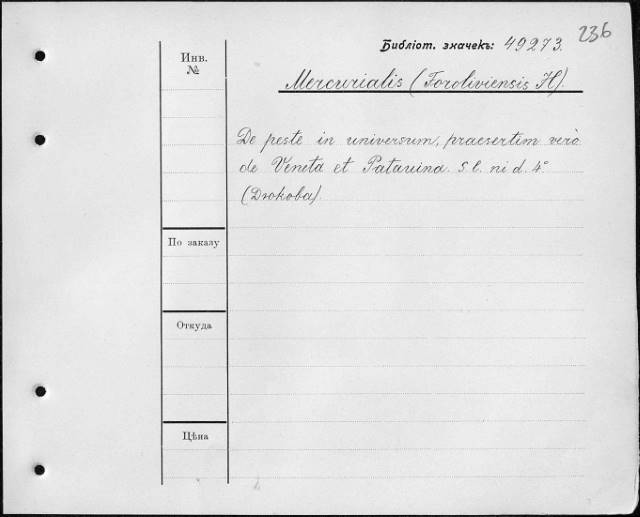 236
Библіот. значекъ: 49273.
Инв.
№
Mercurialis (Foroliviensis H).
De peste in universum, praesertim verò
de Veneta et Patavina. S l. ni d. 4°
(Дюкова)
По заказу
Откуда
Цѣна